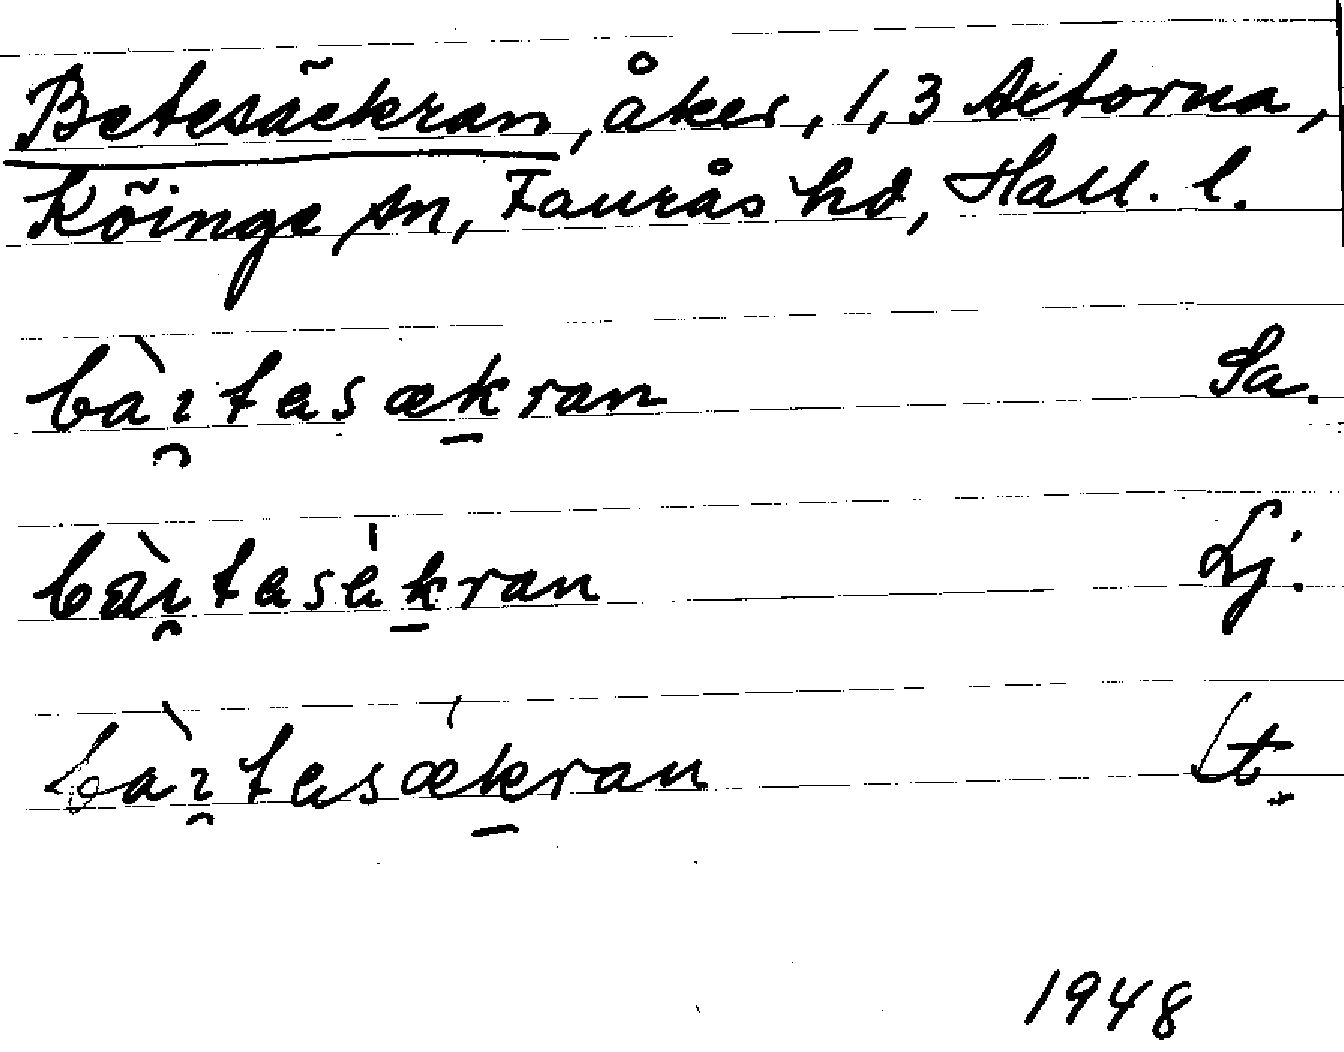 Betesäckran, åker, 1,3 Axtorna,
Köinge sn, Faurås hd, Hall. l.
bàı̯tesæk̲ran Sa.
bæ̀ı̯tesèk̲ran Lj.
bàı̯tesǽk̲ran Lt.
1948